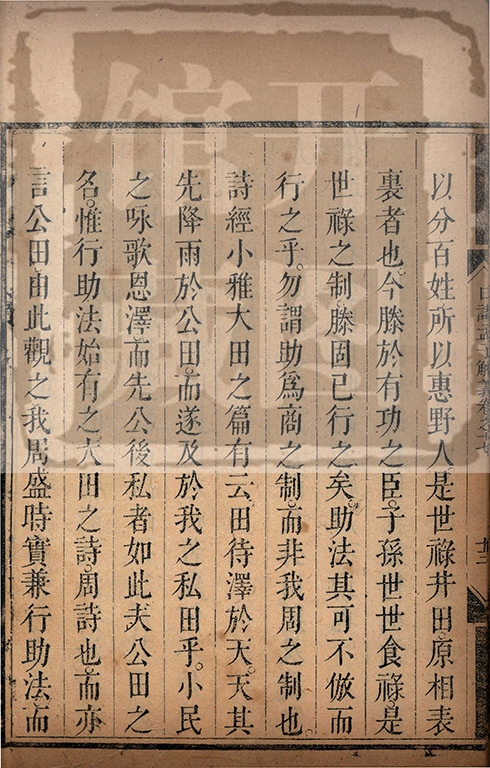 以分百姓所以惠野人是世祿井田原相表
裏者也。今滕於有功之臣。子孫世世食祿。是
世祿之制。滕固已行之矣。助法其可不倣而
行之乎。勿謂助為商之制。而非我周之制也。
詩經小雅大田之篇有云。田待澤於天。天其
先降雨於公田。而遂及於我之私田乎。小民
之咏歌恩澤。而先公後私者如此。夫公田之
名。惟行助法始有之。大田之詩。周詩也。而亦
言公田。由此觀之。我周盛時。實兼行助法。而
日講孟子解義卷之